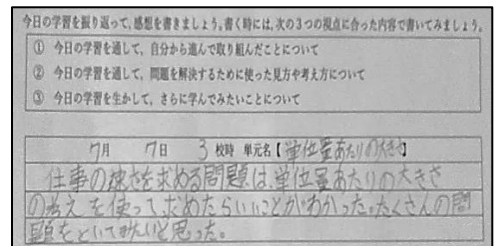 今日の学習を振り返って、感想を書きましょう。書く時には、次の3つの視点に合った内容で書いてみましょう。
① 今日の学習を通して、自分から進んで取り組んだことについて
② 今日の学習を通して、問題を解決するために使った見方や考え方について
③ 今日の学習を生かして、さらに学んでみたいことについて
7月 7日 3校時 単元名【単位量あたりの大きさ】
仕事の速さを求める問題は、単位量あたりの大きさ
の考えを使って求めたらいいことがわかった。たくさんの問
題をといてみたいと思った。